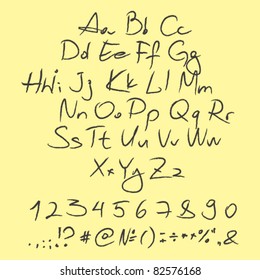 Aa Bb Cc
Dd Ee Ff Gg
Hh Ii Jj Kk Ll Mm
Nn Oo Pp Qq Rr
Ss Tt Uu Vv Ww
Xx Yy Zz
1 2 3 4 5 6 7 8 9 0
.,:;!? #@№() -÷+*%" ,&
shutterstock.com · 82576168